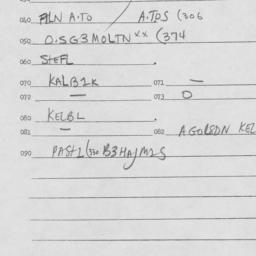 040. ALN A.TO A.TDS (306
050 O.SG3MOLTN×× (374
060 STEFL .
070 KALB1K 071 —
072 — 073 O
080 KELBL .
081 — 082 AGORSDN KEL
090 PAST1 (330 B3HAJM1S